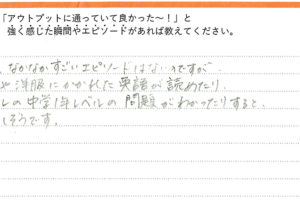 「アウトプットに通っていて良かった〜！」と
強く感じた瞬間やエピソードがあれば教えてください。
なかなかすごいエピソードはないのですが、
や洋服にかかれた英語が読めたり、
レの中学1年レベルの問題がわかったりすると、
しそうです。